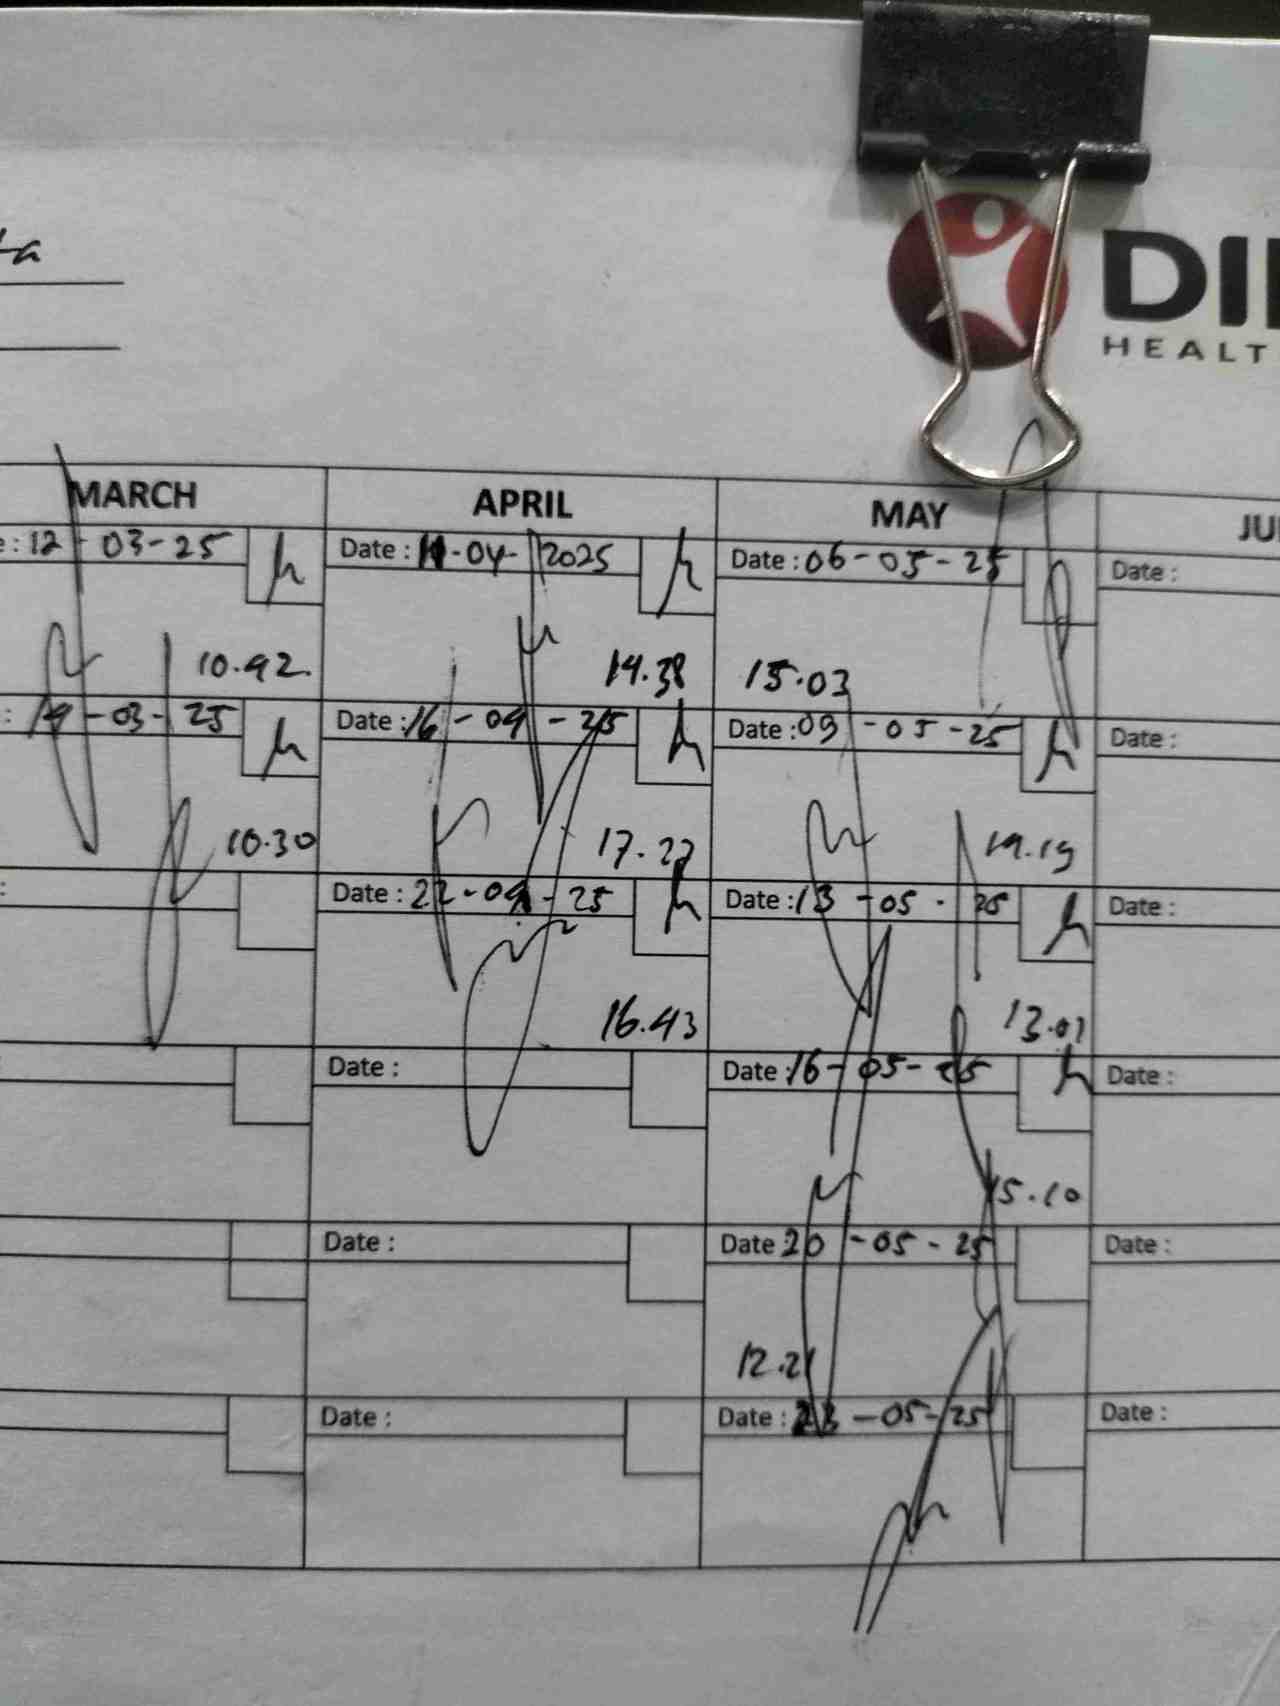 ta
DI
HEALT
MARCH APRIL MAY JU
: 12-03-25 Date : 11-04-2025 Date : 06-05-25 Date :
10.42 14.38 15.03
: 19-03-25 Date : 16-04-25 Date : 09-05-25 Date :
10.30 17.27 14.19
: Date : 22-04-25 Date : 13-05-25 Date :
16.43 13.07
Date : Date : 16-05-25 Date :
15.10
Date : Date 20-05-25 Date :
12.21
Date : Date : 23-05-25 Date :